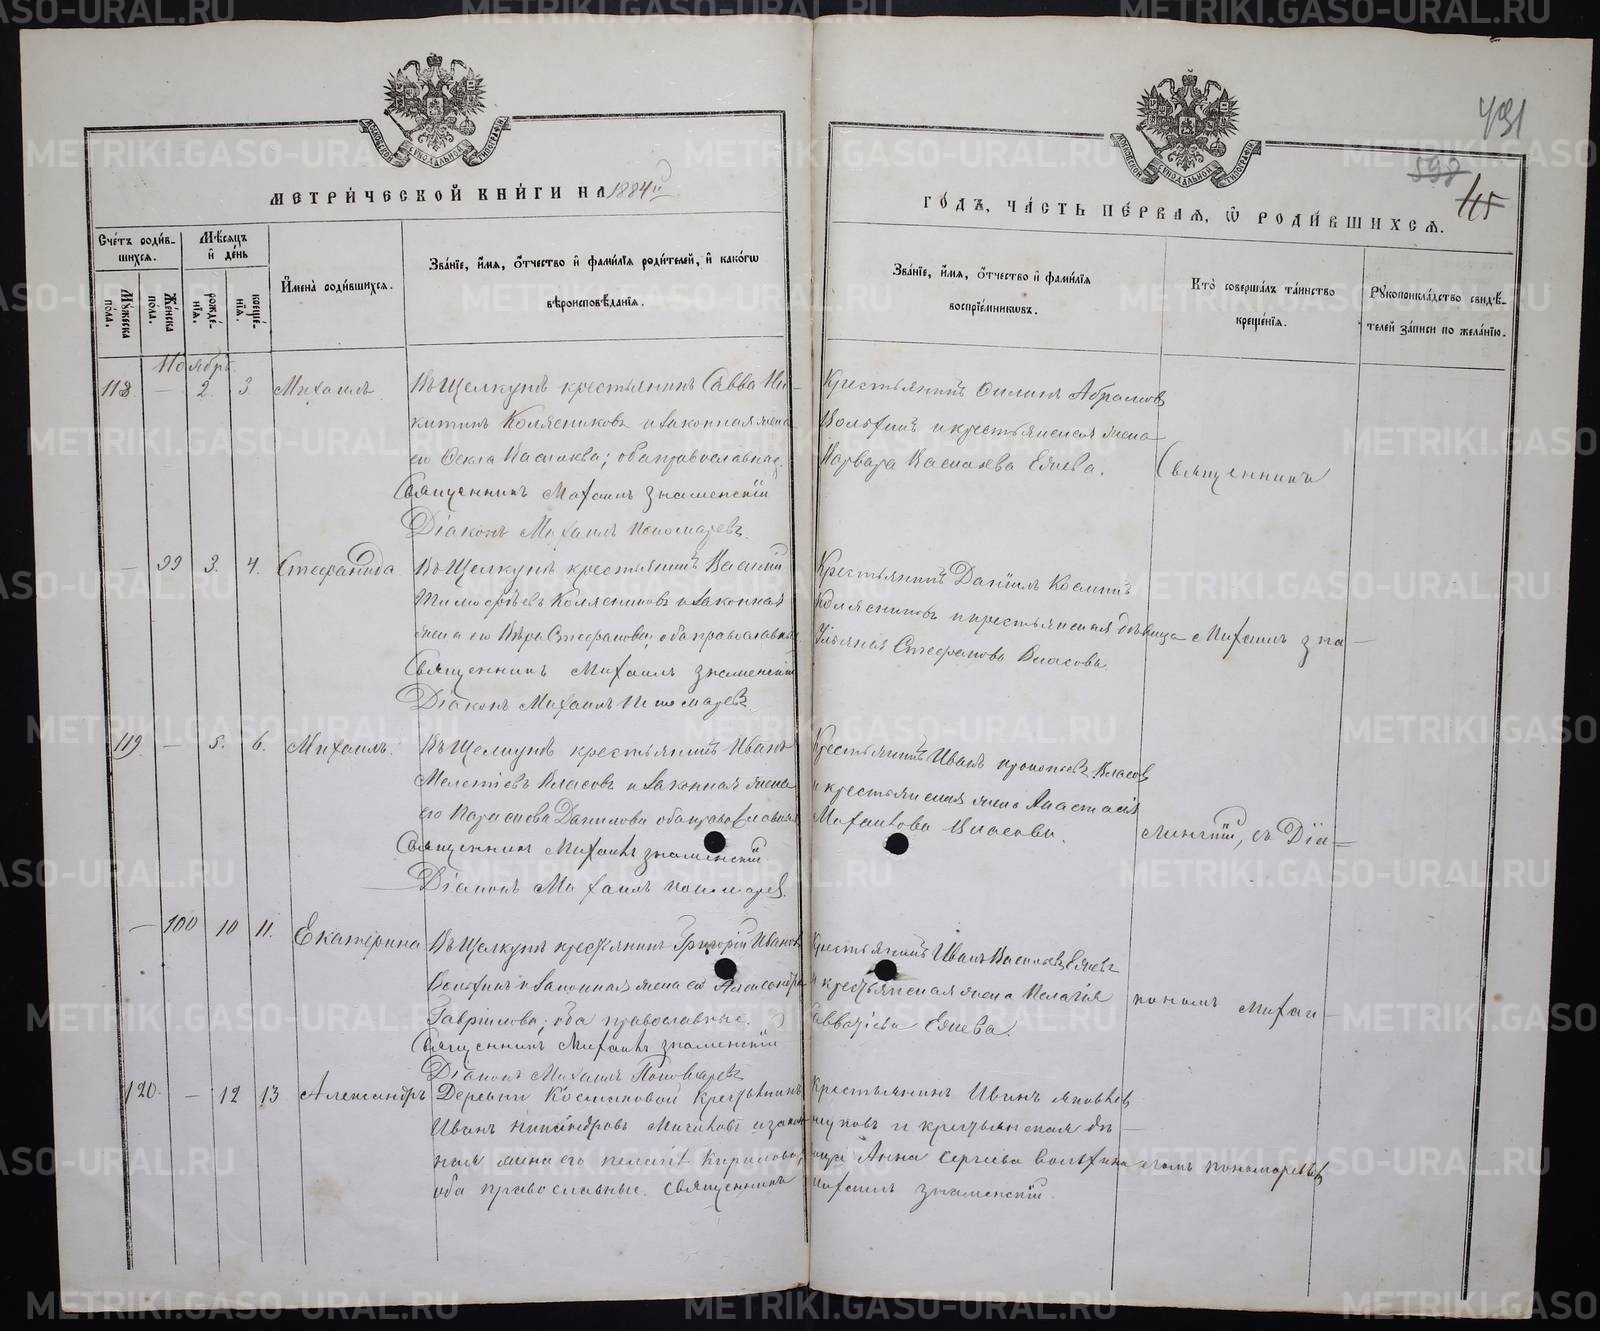 431
598
115
МОСКОВСКОЙ СУНОДАЛЬНОЙ ТИПОГРАФІИ
МОСКОВСКОЙ СУНОДАЛЬНОЙ ТИПОГРАФІИ
МЕТРИ́ЧЕСКОЙ КНИ́ГИ НА 1884й
ГО́ДЪ, ЧА́СТЬ ПЕ́РВАѦ, Ѡ҆ РОДИ́ВШИХСѦ.
Сче́тъ роди́в-
шихсѧ.
Мѣ́сѧцъ
и҆ де́нь
Мꙋ́жеска
по́ла.
Же́нска
по́ла.
рожде́-
нїѧ.
креще́-
нїѧ.
И҆мена̀ роди́вшихсѧ.
Зва́нїе, и҆́мѧ, ѻ҆́тчество и҆ фами́лїѧ роди́телей, и҆ како́гѡ
вѣроисповѣ́данїѧ.
Зва́нїе, и҆́мѧ, ѻ҆́тчество и҆ фами́лїѧ
воспрїе́мникѡвъ.
Кто̀ соверша́лъ та́инство
креще́нїѧ.
Рꙋкоприкла́дство свидѣ́-
телей за́писи по жела́нїю.
Ноябрь
118. — 2. 3 Михаилъ.
Въ Щелкунѣ крестьянинъ Савва Ни-
китинъ Колясниковъ и законная жена
его Оекла Павлова; оба православные.
Священникъ Михаилъ Знаменскій
Діаконъ Михаилъ Пономаревъ.
Крестьянинъ Филипъ Абрамовъ
Вольхинъ и крестьянская жена
Варвара Васильева Еляева.
Священникъ
— 99 3. 4. Стефанида
Въ Щелкунѣ крестьянинъ Василій
Колясниковъ и законная
жена его Вѣра Стефанова; оба православные
Священникъ Михаилъ Знаменскій
Діаконъ Михаилъ Пономаревъ.
Крестьянинъ Даніилъ Косминъ
Колясниковъ и крестьянская дѣвица
Ульяна Стефанова Власова.
Михаилъ Зна—
119. — 5. 6. Михаилъ.
Въ Щелкунѣ крестьянинъ Иванъ
Мелетіевъ Власовъ и законная жена
его Параскева Данилова оба православные
Священникъ Михаилъ Знаменскій
Діаконъ Михаилъ Пономаревъ.
Крестьянинъ Иванъ Прокопьевъ Власовъ
и крестьянская жена Анастасія
Михайлова Власова.
менскій, съ Діа—
— 100 10 11. Екатерина
Въ Щелкунѣ крестьянинъ Григорій Ивановъ
Вольхинъ и законная жена его Александра
Гавріилова; оба православные.
Священникъ Михаилъ Знаменскій
Діаконъ Михаилъ Пономаревъ
Крестьянинъ Иванъ Васильевъ Еляевъ
и крестьянская жена Пелагія
Савватіева Еляева.
кономъ Михаи—
120. — 12 13 Александръ
Деревни Космаковой Крестьянинъ
Иванъ Никандровъ и закон
ная жена его Пелагія Кирилова,
оба православные. Священникъ
Крестьянинъ Иванъ Яковлевъ
и крестьянская дѣ—
вица Анна Сергіева Вольхина
Михаилъ Знаменскій.
ломъ Пономаревымъ
METRIKI.GASO-URAL.RU